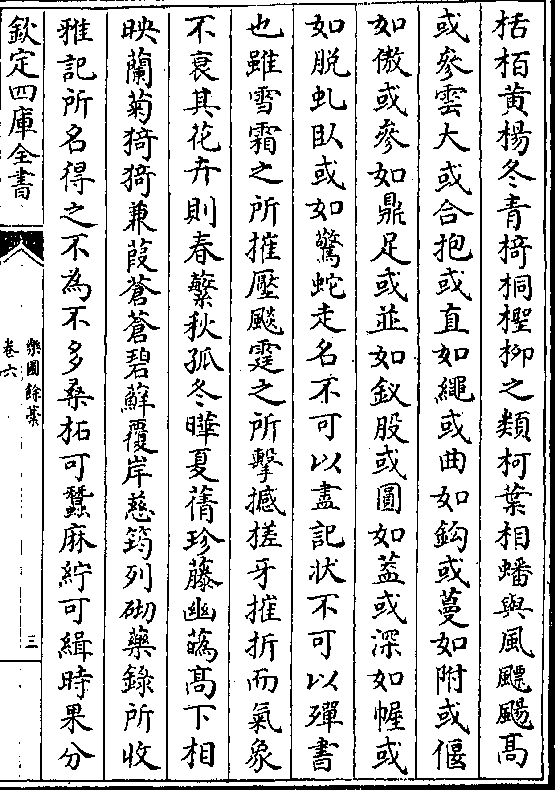 栝栢黄楊冬青椅桐檉柳之類柯葉相蟠與風飄颺髙
或參雲大或合抱或直如繩或曲如鈎或蔓如附或偃
如傲或參如鼎足或並如釵股或圓如葢或深如幄或
如脫虬卧或如驚蛇走名不可以盡記狀不可以殫書
也雖雪霜之所摧壓飈霆之所擊撼槎牙摧折而氣象
不衰其花卉則春蘩秋孤冬曄夏蒨珍藤幽蘤髙下相
映蘭菊猗猗兼葭蒼蒼碧蘚覆岸慈筠列砌藥錄所收
雅記所名得之不為不多桑拓可蠶麻紵可緝時果分
欽定四庫全書
樂圃餘藁
卷六
三